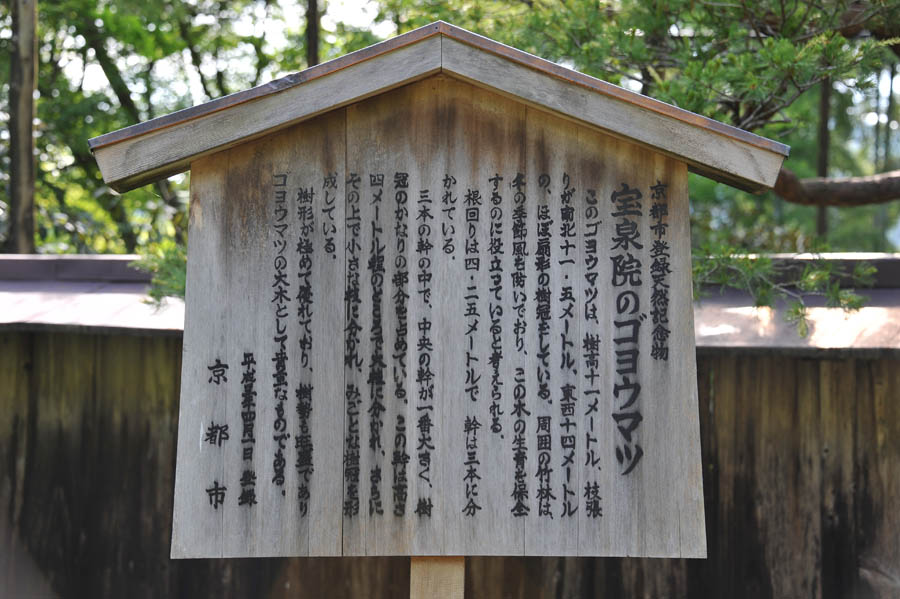 京都市登録天然記念物
宝泉院のゴヨウマツ
このゴヨウマツは、樹高十一メートル、枝張
りが南北十一・五メートル、東西十四メートル
の、ほぼ扇形の樹冠をしている。周囲の竹林は、
冬の季節風を防いでおり、この木の生育を保全
するのに役立っていると考えられる。
根回りは四・二五メートルで、幹は三本に分
かれている。
三本の幹の中で、中央の幹が一番大きく、樹
冠のかなりの部分を占めている。この幹は高さ
四メートル程のところで大枝に分かれ、さらに
その上で小さな枝に分かれ、みごとな樹冠を形
成している。
樹形が極めて優れており、樹勢も旺盛であり
ゴヨウマツの大木として貴重なものである。
平成 年四月一日 登録
京都市